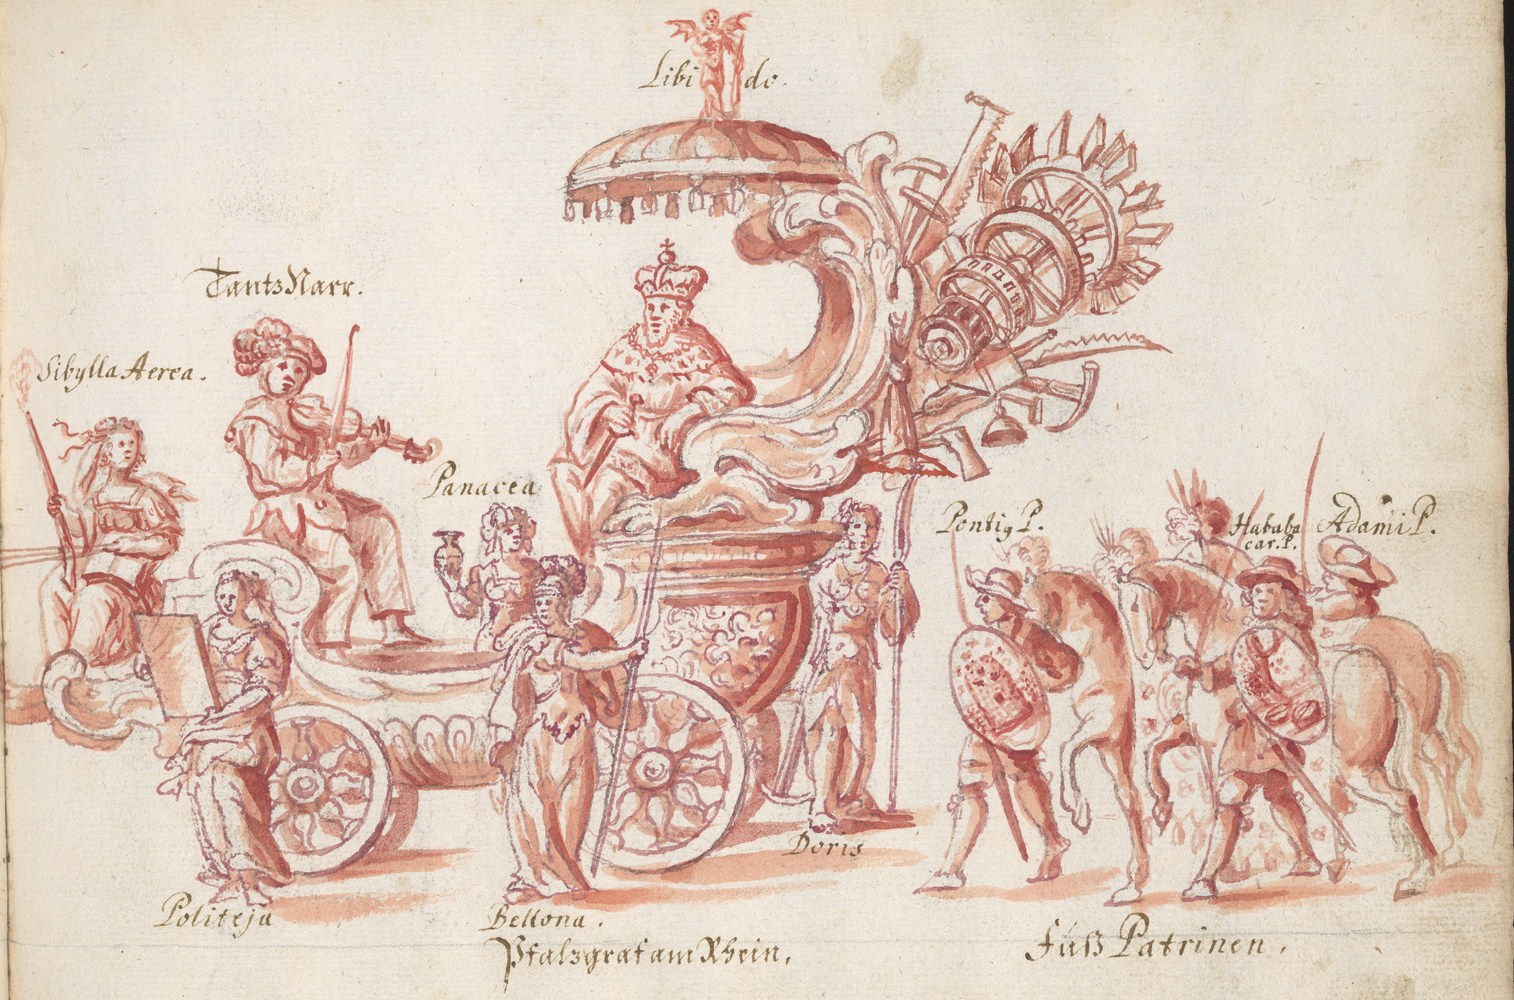 Libido.
TantzNarr.
Sibylla Aerea.
Panacea
Pontig P.
Hababa
car. P.
Adami P.
Doris
Politeja
Bellona.
Pfalzgraf am Rhein.
Fúß Patrinen.